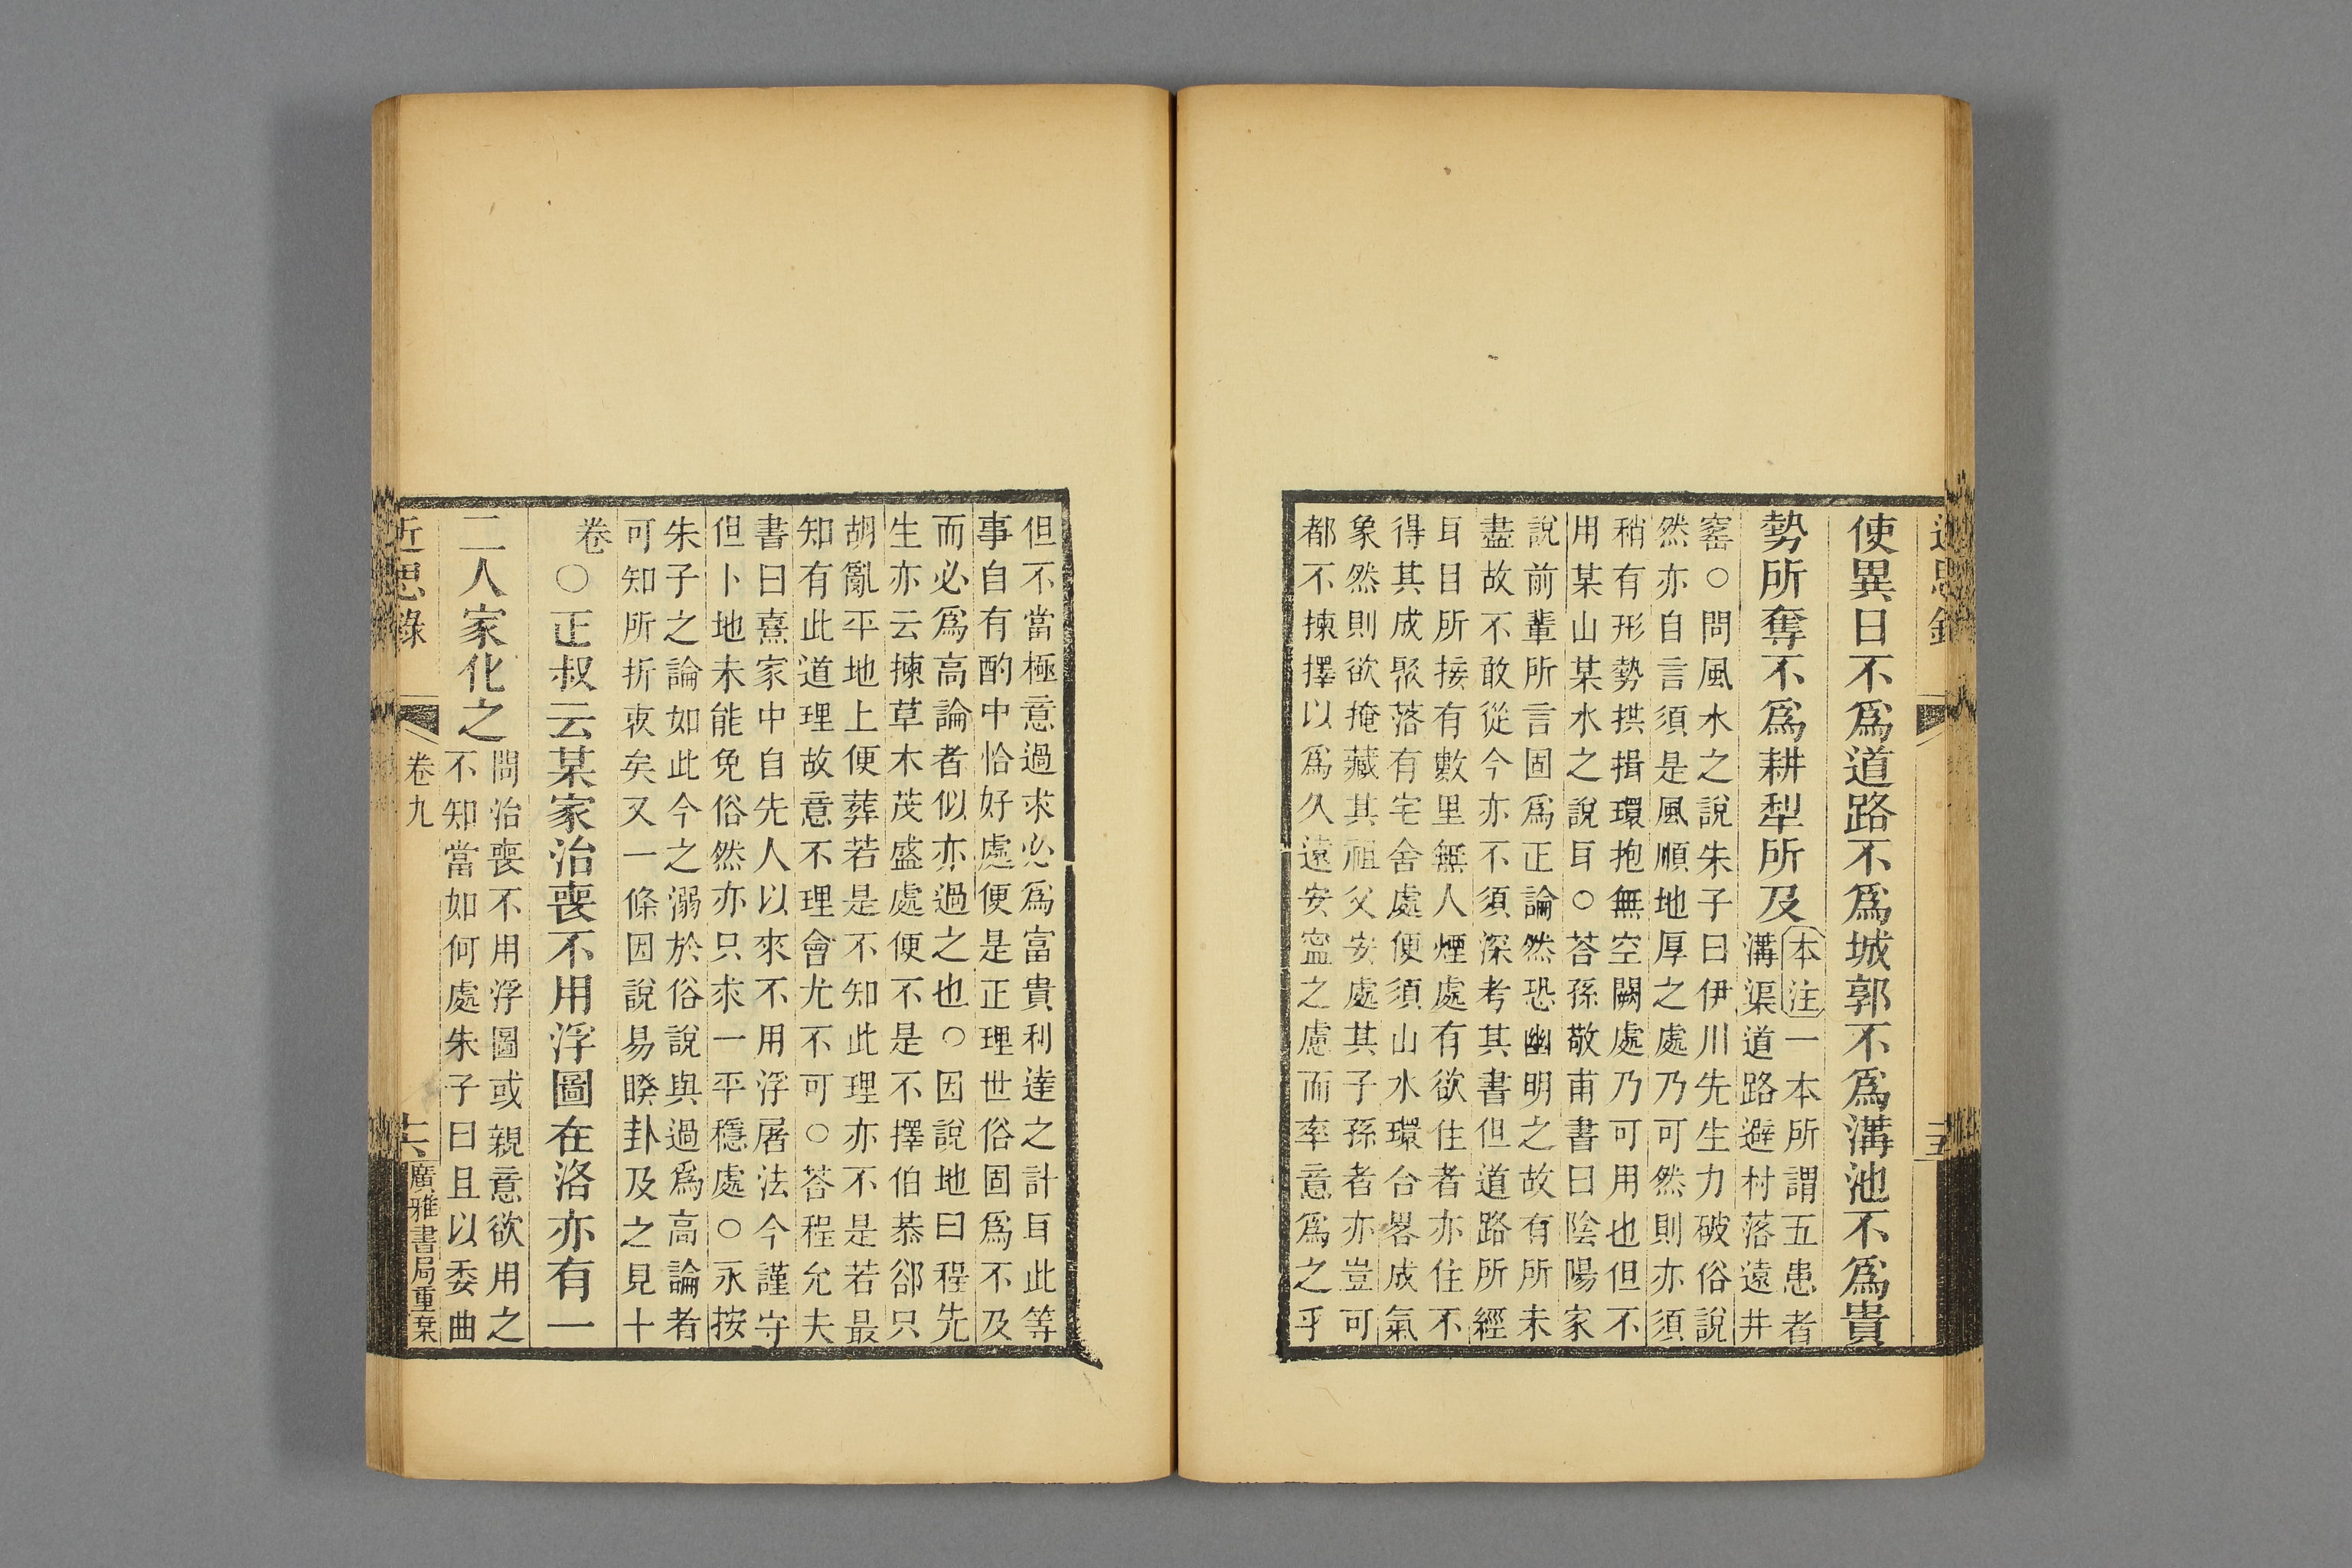 使異日不爲道路不爲城郭不爲溝池不爲貴
勢所奪不爲耕犁所及本注一本所謂五患者
溝渠道路避村落遠井
窰○問風水之說朱子曰伊川先生力破俗說
然亦自言須是風順地厚之處乃可然則亦須
稍有形勢拱揖環抱無空闕處乃可用也但不
用某山某水之說耳○荅孫敬甫書曰陰陽家
說前輩所言固爲正論然恐幽明之故有所未
盡故不敢從今亦不須深考其書但道路所經
耳目所接有數里無人煙處有欲住者亦住不
得其成聚落有宅舍處便須山水環合畧成氣
象然則欲掩藏其祖父安處其子孫者亦豈可
都不揀擇以爲久遠安寍之慮而率意爲之乎
但不當極意過求必爲富貴利達之計耳此等
事自有酌中恰好處便是正理世俗固爲不及
而必爲高論者似亦過之也○因說地曰程先
生亦云揀草木茂盛處便不是不擇伯恭卻只
胡亂平地上便葬若是不知此理亦不是若最
知有此道理故意不理會尤不可○荅程允夫
書曰熹家中自先人以來不用浮屠法今謹守
但卜地未能免俗然亦只求一平穩處○永按
朱子之論如此今之溺於俗說與過爲高論者
可知所折衷矣又一條因說易睽卦及之見十
卷
○正叔云某家治喪不用浮圖在洛亦有一
二人家化之問治喪不用浮圖或親意欲用之
不知當如何處朱子曰且以委曲
近思錄 卷九 十六 廣雅書局重栞